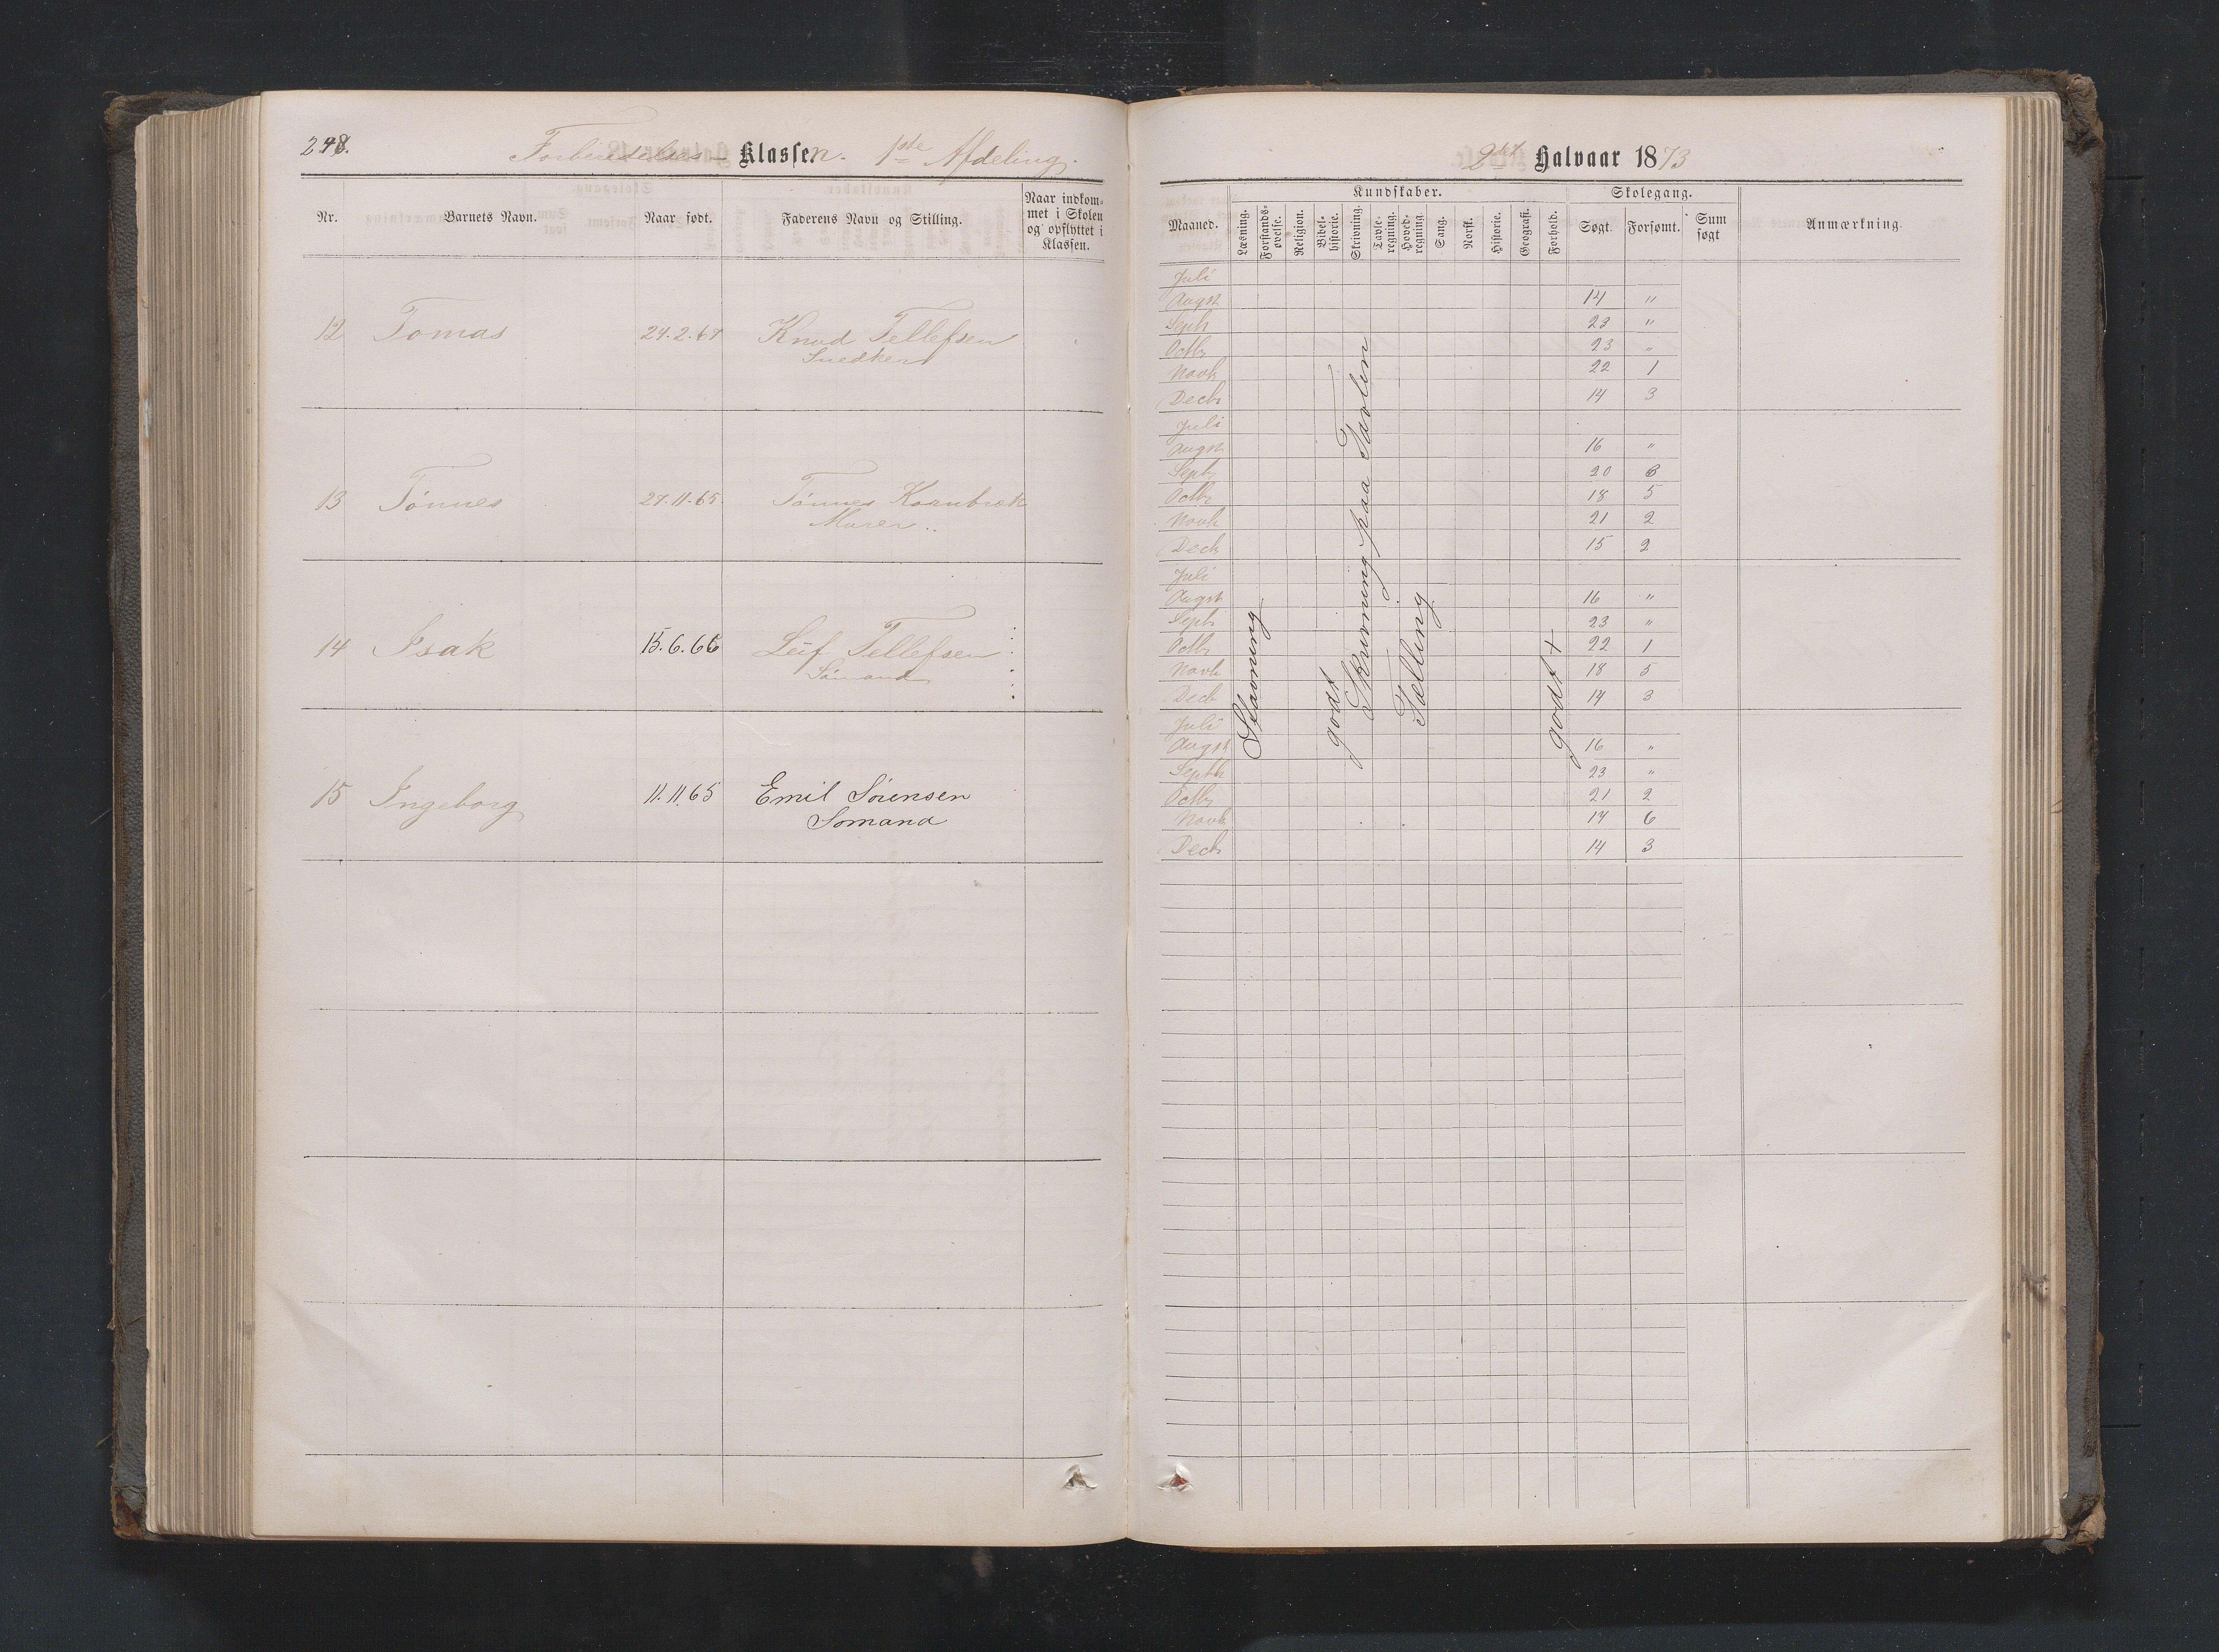 248.
Forberedelses-Klassen. 1ste Afdeling.
Nr. Barnets Navn. Naar født. Faderens Navn og Stilling. Naar indkom-
met i Skolen
og opflyttet i
Klassen.
12 Tomas 24.2.67 Knud Tellefsen
Snedker
13 Tønnes 27.11.65 Tønnes Kornbrek
Murer
14 Isak 15.6.66 Leif Tellefsen
Sømand
15 Ingeborg 11.11.65 Emil Sørensen
Sømand
2det Halvaar 1873
Kundskaber. Skolegang.
Maaned. Læsning. Forstands-
øvelse. Religion. Bibel-
historie. Skrivning. Tavle-
regning. Hoved-
regning. Sang. Norsk. Historie. Geografi. Forhold. Søgt. Forsømt. Sum
søgt Anmærkning.
Juli
Augst 14 "
Septb 23 "
Octbr 23 "
Novb 22 1
Decbr 14 3
Juli
Augst 16 "
Septb 20 6
Octbr 18 5
Novb 21 2
Decb 15 2
Juli
Augst 16 "
Septb 23 "
Octb 22 1
Novb 18 5
Decb 14 3
Juli
Augst 16 "
Septb 23 "
Octbr 21 2
Novb 17 6
Decb 14 3
Stavning
godt
Skrivning paa Tavlen
Tælling
godt +